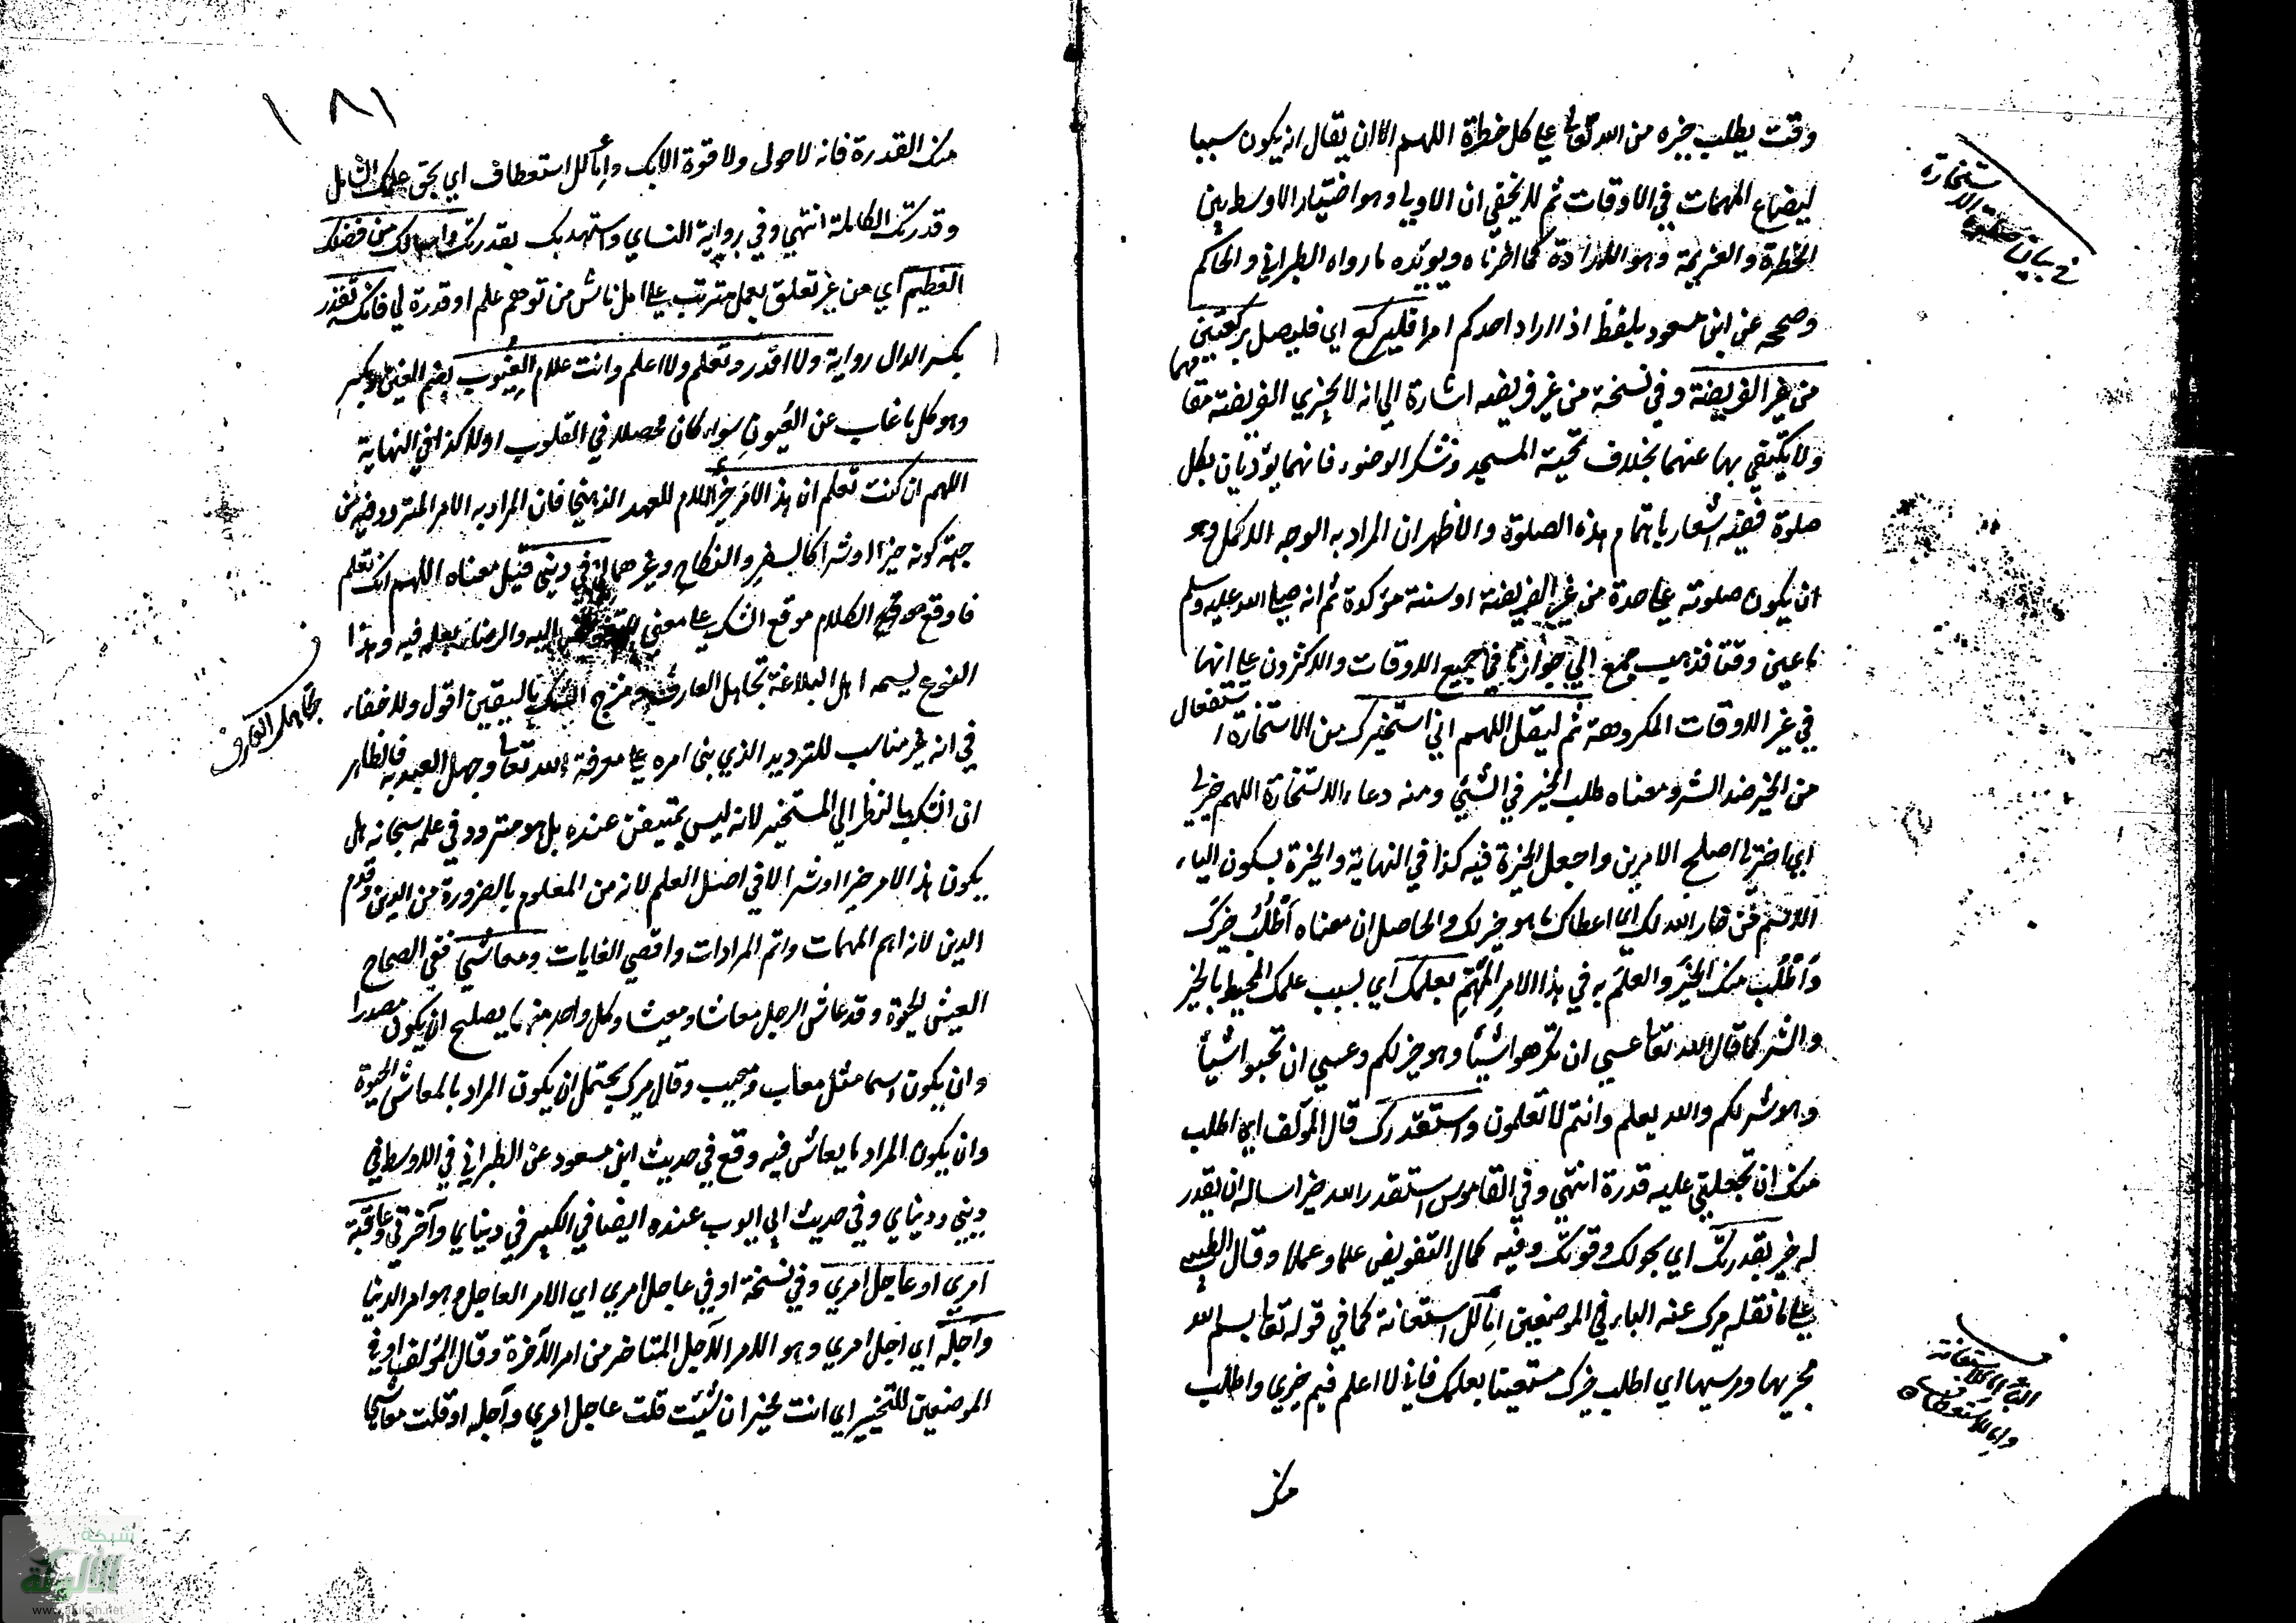 وقت يطلب خيره من الله تعالى على كل خطرة اللهم الا ان يقال انه يكون سببا
ليضاع المهمات في الاوقات ثم لا يخفى ان الاولى وهو اختيار الاوسط بين
الخطرة والعزيمة وهو الارادة كما اخترناه ويؤيده ما رواه الطبراني والحاكم
وصححه عن ابن مسعود بلفظ اذا اراد احدكم امرا فليركع اي فليصل ركعتين
من غير الفريضة وفي نسخة من غير فريضة اشارة الى انه لا يجزي الفريضة مقامهما
ولا يكتفي بها عنهما بخلاف تحية المسجد وشكر الوضوء فانهما يؤديان بكل
صلوة ففيه اشعار باهتمام هذه الصلوة والاظهر ان المراد به الوجه الاكمل وهو
ان يكون صلوته على حدة من غير الفريضة او سنة مؤكدة ثم انه صلى الله عليه وسلم
ما عين وقتا فذهب جمع الى جوازها في جميع الاوقات والاكثرون على انها
في غير الاوقات المكروهة ثم ليقل اللهم اني استخيرك من الاستخارة استفعال
من الخير ضد الشر ومعناه طلب الخير في الشيئ ومنه دعاء الاستخارة اللهم خر لي
اي اختر لي اصلح الامرين واجعل الخيرة فيه كذا في النهاية والخيرة بسكون الياء
الاسم من خار الله لك اي اعطاك ما هو خير لك والحاصل ان معناه اطلب خيرك
واطلب منك الخير والعلم به في هذا الامر المهم بعلمك اي بسبب علمك المحيط بالخير
والشر كما قال الله تعالى عسى ان تكرهوا شيئا وهو خير لكم وعسى ان تحبوا شيئا
وهو شر لكم والله يعلم وانتم لا تعلمون واستقدرك قال المؤلف اي اطلب
منك ان تجعلني عليه قدرة انتهى وفي القاموس استقدر الله خيرا ساله ان يقدر
له خير بقدرتك اي بحولك وقوتك وفيه كمال التفويض علما وعملا وقال الطيبي
على ما نقله ميرك عنه الباء في الموضعين اما للاستعانة كما في قوله تعالى بسم الله
مجريها ومرسيها اي اطلب خيرك مستعينا بعلمك فاني لا اعلم فيم خيري واطلب
منك
في بيان صلوة الاستخارة
الباء اما للاستعانة
واما للاستعطاف
١٨١
منك القدرة فانه لا حول ولا قوة الا بك واما للاستعطاف اي بحق علمك الشامل
وقدرتك الكاملة انتهى وفي رواية النساي واستهديك بقدرتك واسالك من فضلك
العظيم اي من غير تعلق بعمل مترتب على امل ناش من توهم علم او قدرة لي فانك تقدر
بكسر الدال رواية ولا اقدر وتعلم ولا اعلم وانت علام الغيوب بضم الغين وبكسر
وهو كل ما غاب عن العيون سواء كان محصلا في القلوب او لا كذا في النهاية
اللهم ان كنت تعلم ان هذا الامر خير اللام للعهد الذهني فان المراد به الامر المتردد فيه من
جهة كونه خيرا او شرا كالسفر والنكاح وغيرهما لي في ديني قيل معناه اللهم انك تعلم
فاوقع الكلام موقع الشك على معنى التفويض اليه والرضاء بعلمه فيه وهذا
النوع يسمه اهل البلاغة تجاهل العارف ومزج الشك باليقين اقول ولا خفاء
في انه غير مناسب للترديد الذي بنى امره على معرفة الله تعالى وجهل العبد به فالظاهر
ان الشك بالنظر الى المستخير لانه ليس بمتيقن عنده بل هو متردد في علمه سبحانه هل
يكون هذا الامر خيرا او شرا لا في اصل العلم لانه من المعلوم بالضرورة من الدين وقدم
الدين لانه اهم المهمات واتم المرادات واقصى الغايات ومعاشي ففي الصحاح
العيش الحيوة وقد عاش الرجل معاشا ومعيشا وكل واحد منهما يصلح ان يكون مصدرا
وان يكون اسما مثل معاب ومعيب وقال ميرك يحتمل ان يكون المراد بالمعاش الحيوة
وان يكون المراد ما يعاش فيه وقع في حديث ابن مسعود عن الطبراني في الاوسط في
ديني ودنياي وفي حديث ابي ايوب عنده ايضا في الكبير في دنياي وآخرتي وعاقبة
امري او عاجل امري وفي نسخة او في عاجل امري اي الامر العاجل وهو امر الدنيا
وآجله اي اجل امري وهو الامر الآجل المتاخر من امر الآخرة وقال المؤلف او في
الموضعين للتخيير اي انت مخير ان شئت قلت عاجل امري وآجله او قلت معاشي
تجاهل العارف
شبكة
الألوكة
www.alukah.net